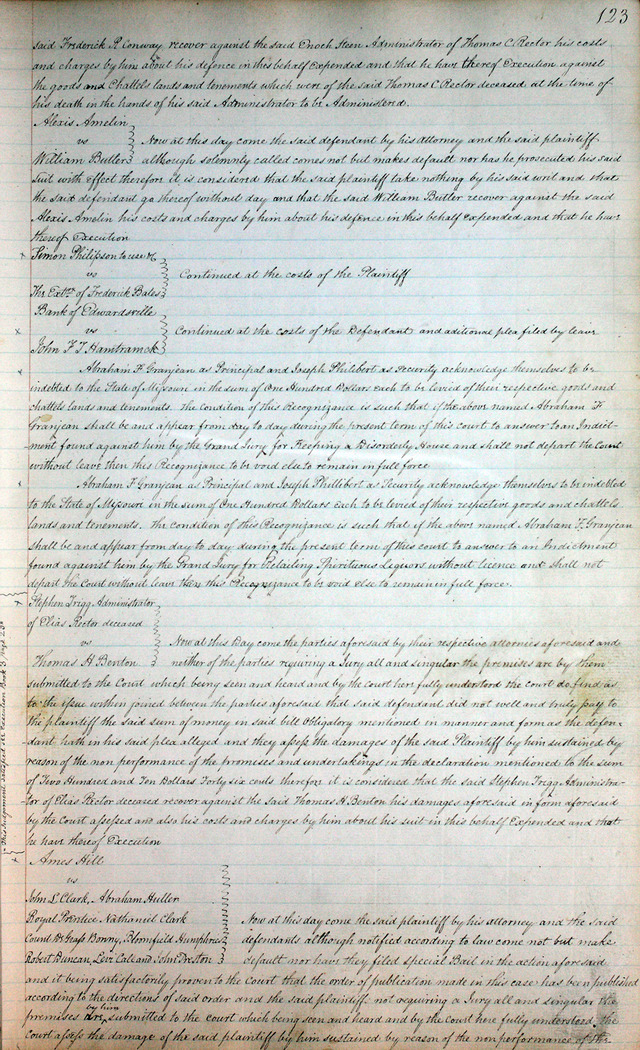 123
said Frederick R Conway recover against the said Enoch Steen Administrator of Thomas C. Rector his costs
and charges by him about his defence in this behalf Expended and that he have thereof Execution against
the goods and Chattels lands and tenements which were of the said Thomas C Rector deceased at the time of
his death in the hands of his said Administrator to be Administered.
Alexis Amelin
vs
William Butler
Now at this day come the said defendant by his attorney and the said plaintiff
although solemnly called comes not but makes default nor has he prosecuted his said
suit with effect therefore it is considered that the said plaintiff take nothing by his said writ and that
the said defendant go thereof without day and that the said William Butler recover against the said
Alexis Amelin his costs and charges by him about his defence in this behalf Expended and that he have
thereof Execution
x Simon Philipson to use &c
vs
The Extrs. of Frederick Bates
Continued at the costs of the Plaintiff
Bank of Edwardsville
x vs
John F T Hamtramck
Continued at the costs of the Defendant and aditional plea filed by leave
x Abraham F. Granjean as Principal and Joseph Philibert as Security acknowledge themselves to be
indebted to the State of Missouri in the sum of One Hundred Dollars each to be levied of their respective goods and
chattels lands and tenements. The Condition of this Recognizance is such that if the above named Abraham F.
Granjean shall be and appear from day to day during the present term of this court to answer to an Indict-
-ment found against him by the Grand Jury for Keeping a Disorderly House and shall not depart the Court
without leave then this Recognizance to be void else to remain in full force
x Abraham F. Granjean as Principal and Joseph Phillibert as Security acknowledge themselves to be indebted
to the State of Missouri in the sum of One Hundred Dollars Each to be levied of their respective goods and chattels
lands and tenements. The condition of this Recognizance is such that if the above named Abraham F. Granjean
shall be and appear from day to day during the present term of this court to answer to an Indictment
found against him by the Grand Jury for Retailing Spirituous Liquors without licence and shall not
depart the Court without leave then this Recognizance to be void else to remain in full force.
x Stephen Trigg Administrator
of Elias Rector deceased
vs
Thomas H. Benton
Now at this Day come the parties aforesaid by their respective attornies aforesaid and
neither of the parties requiring a Jury all and singular the premises are by them
submitted to the Court which being seen and heard and by the court here fully understood the court do find as
to the issue within joined between the parties aforesaid that said defendant did not well and truly pay to
the plaintiff the said sum of money in said bill Obligatory mentioned in manner and form as the defen-
-dant hath in his said plea alleged and they assess the damages of the said Plaintiff by him sustained by
reason of the non performance of the promises and undertakings in the declaration mentioned to the sum
of Two Hundred and Ten Dollars Forty six cents therefore it is considered that the said Stephen Trigg Administra-
-tor of Elias Rector deceased recover against the said Thomas H. Benton his damages aforesaid in form aforesaid
by the Court assessed and also his costs and charges by him about his suit in this behalf Expended and that
he have thereof Execution
Ames Hill
vs
John L. Clark, Abraham Huller
Royal Prentice Nathaniel Clark
Count De Grass Bonny, Bloomfield Humphries
Robert Duncan, Levi Cale and John Preston
Now at this day come the said plaintiff by his attorney and the said
defendants although notified according to law come not but make
default nor have they filed special Bail in the action aforesaid
and it being satisfactorily proven to the Court that the order of publication made in this case has been published
according to the directions of said order and the said plaintiff not requiring a Jury all and singular the
premises are by him submitted to the court which being seen and heard and by the Court here fully understood the
court assess the damage of the said plaintiff by him sustained by reason of the non performance of the